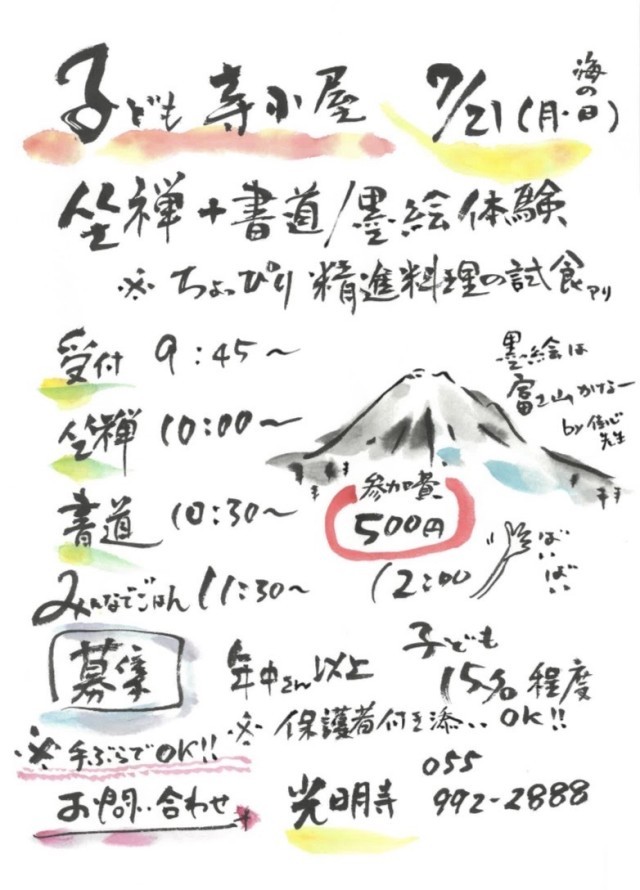 子ども 寺小屋 7/21(月・海の日)
坐禅+書道/墨絵体験
※ ちょっぴり 精進料理の試食アリ
受付 9:45〜
坐禅 10:00〜
書道 10:30〜
みんなでごはん 11:30〜
墨絵は
富士山かけるー
by 信心
先生
参加費
500円
12:00
ばいばい
募集 年中さん以上 子ども
15名程度
※ 手ぶらでOK!!
※ 保護者付き添いOK!!
お問い合わせ 光明寺 055
992-2888